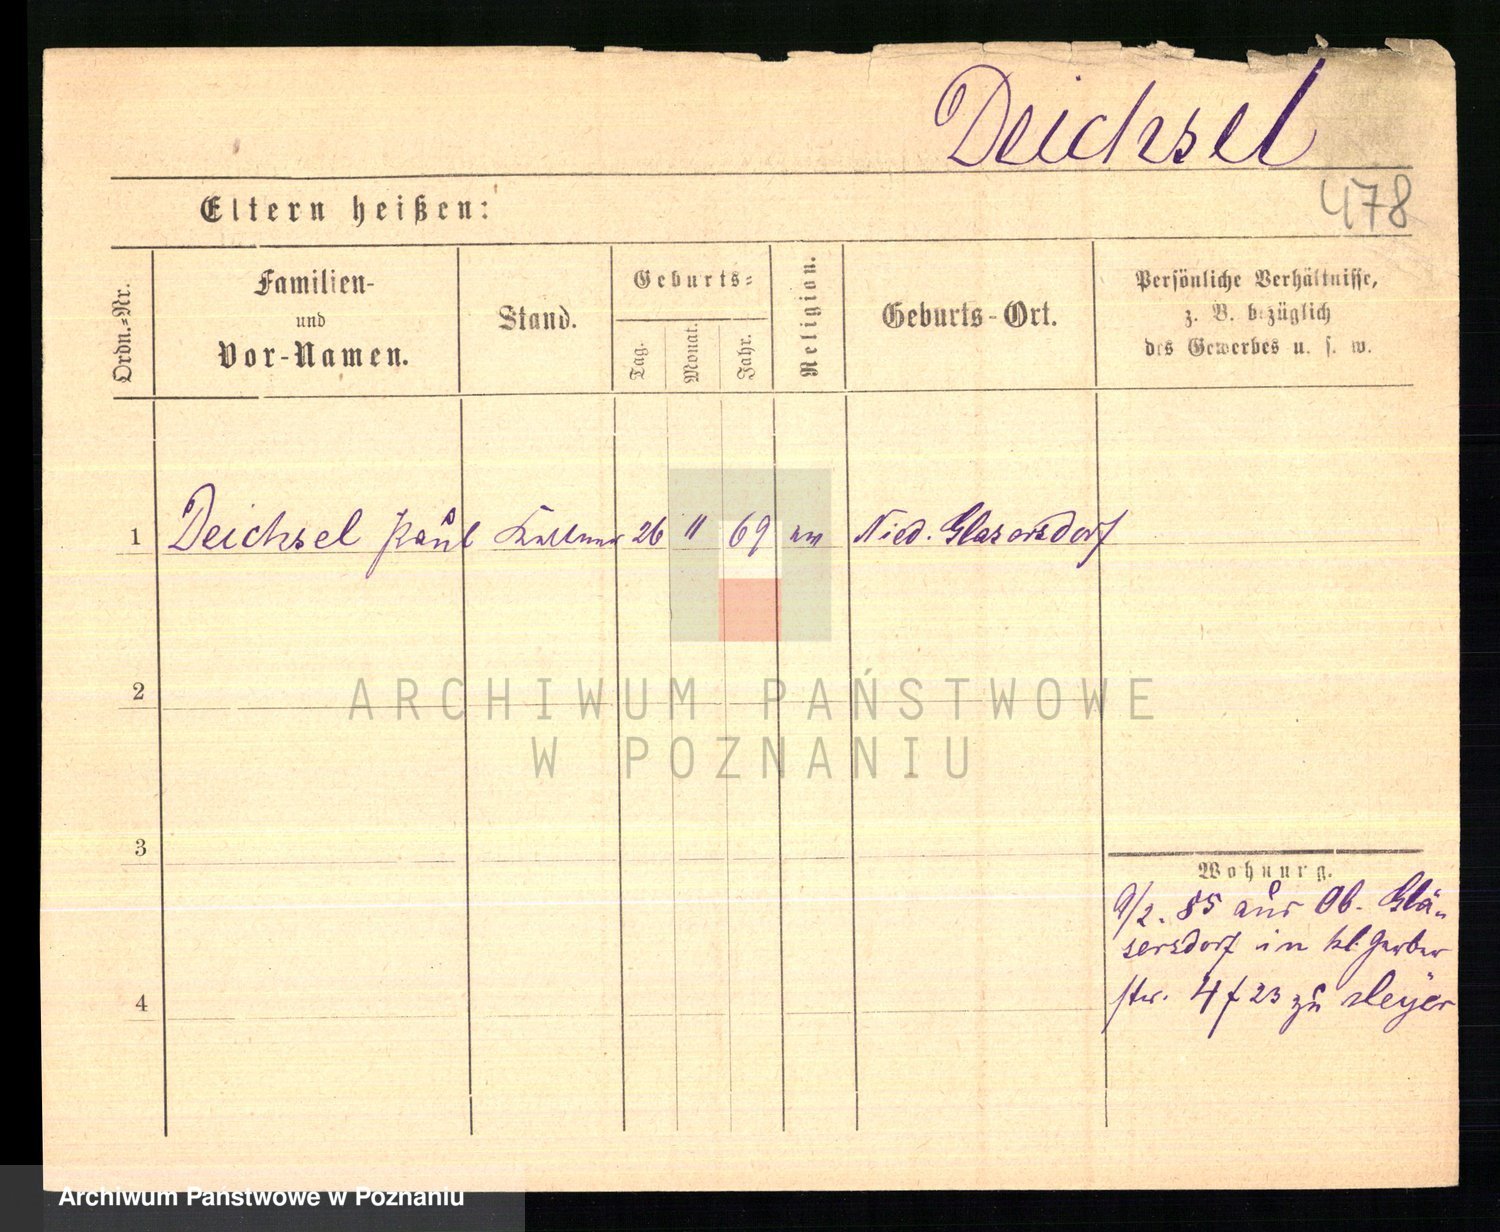 Deichsel
478
Eltern heißen:
Ordn.-Nr.
Familien-
und
Vor-Namen.
Stand.
Geburts-
Tag.
Monat.
Jahr.
Religion.
Geburts-Ort.
Persönliche Verhältnisse,
z. B. bezüglich
des Gewerbes u. s. w.
1 Deichsel Paul Kellner 26 11 69 ev Nied. Glasersdorf
2
ARCHIWUM PAŃSTWOWE
W POZNANIU
3
Wohnung.
9/2. 85 aus Ob. Glä-
sersdorf in kl. Gerber
4
str. 4 f 23 zu
Archiwum Państwowe w Poznaniu